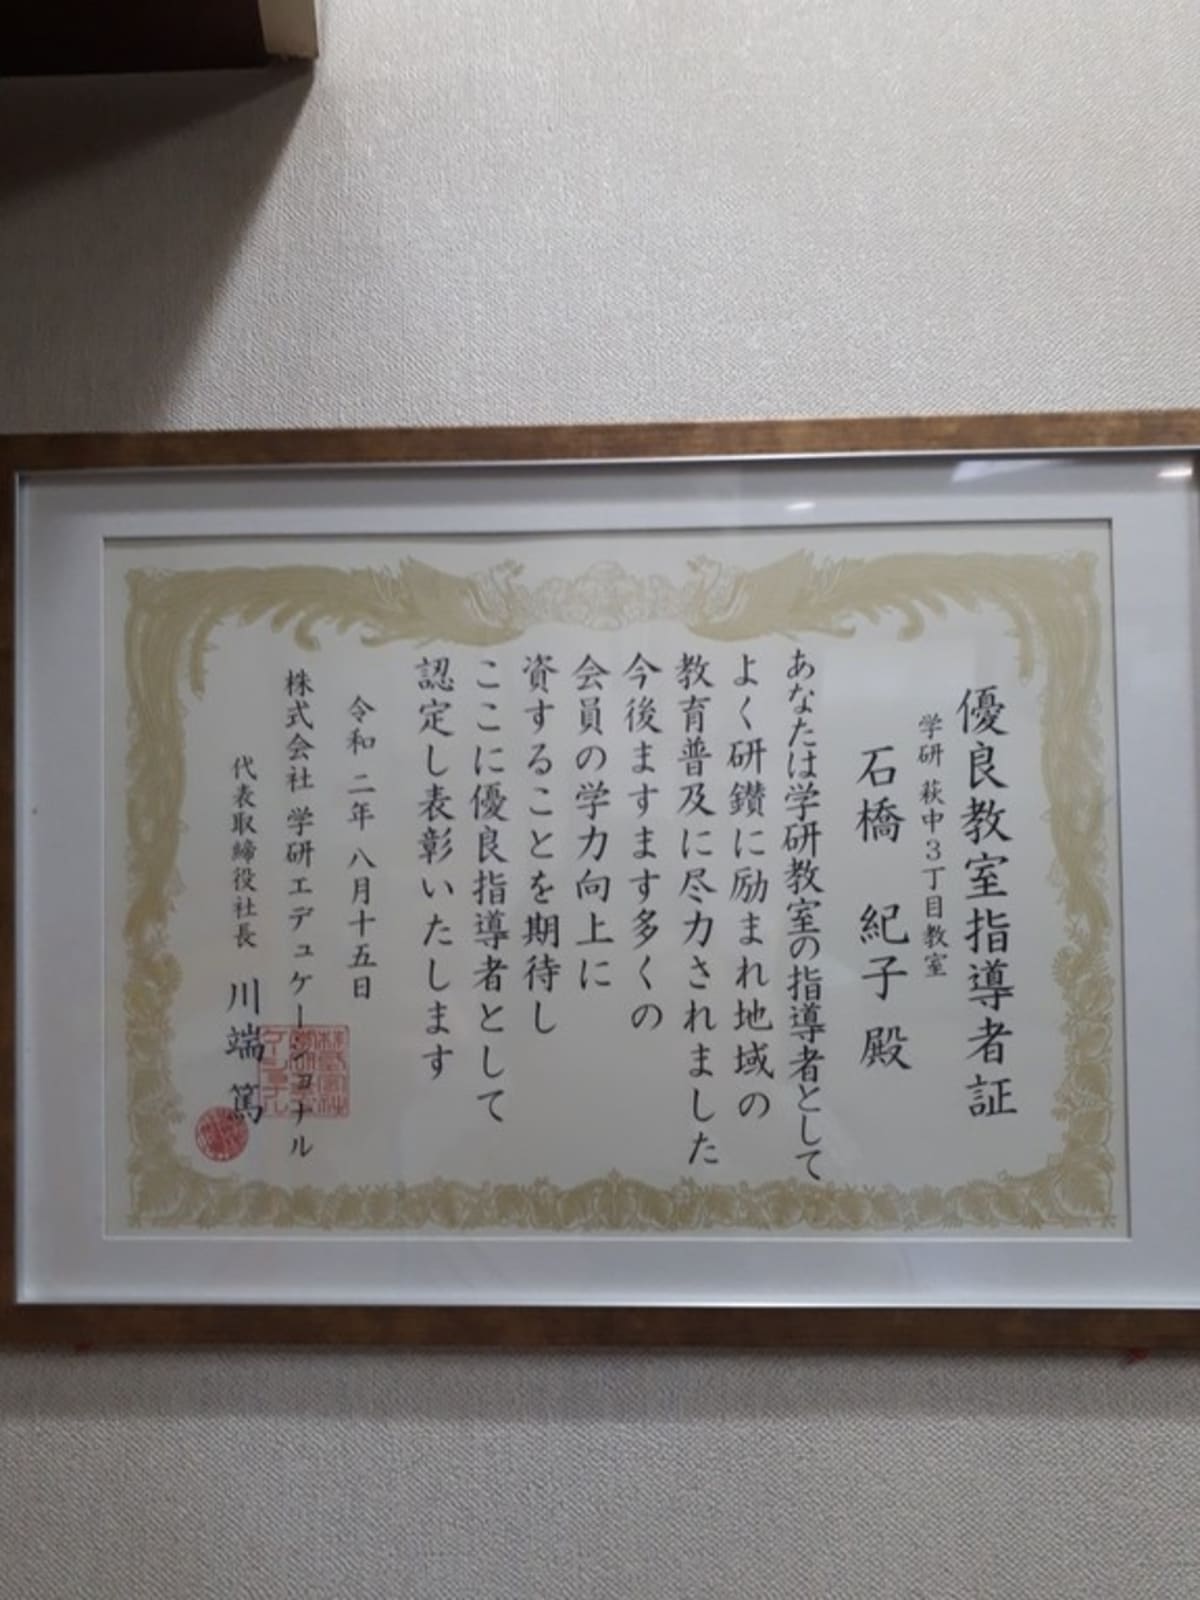 優良教室指導者証
学研 萩中3丁目教室
石橋 紀子 殿
あなたは学研教室の指導者として
よく研鑽に励まれ地域の
教育普及に尽力されました
今後ますます多くの
会員の学力向上に
資することを期待し
ここに優良指導者として
認定し表彰いたします
令和二年八月十五日
株式会社 学研エデュケーショナル
代表取締役社長 川端 篤